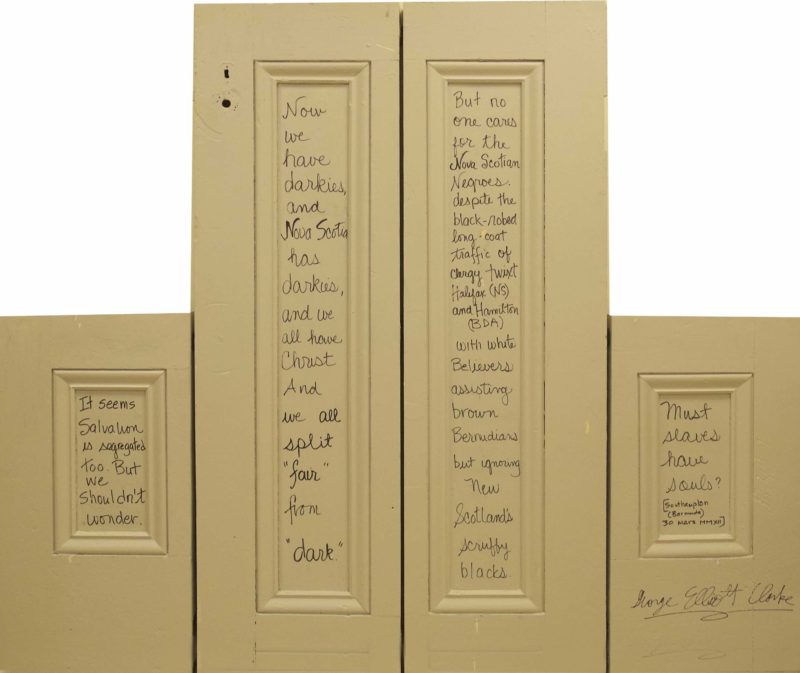 It seems
Salvation
is segregated
too. But
we
shouldn't
wonder.
Now
we
have
darkies,
and
Nova Scotia
has
darkies,
and we
all have
Christ
And
we all
split
"fair"
from
"dark."
But no
one cares
for the
Nova Scotian
Negroes.
despite the
black-robed
long-coat
traffic of
clergy twixt
Halifax (NS)
and Hamilton
(BDA)
with white
Believers
assisting
brown
Bermudians
but ignoring
New
Scotland's
scruffy
blacks.
Must
slaves
have
souls?
[Southampton
(Bermuda)
30 Mars MMXII]
George Elliott Clarke